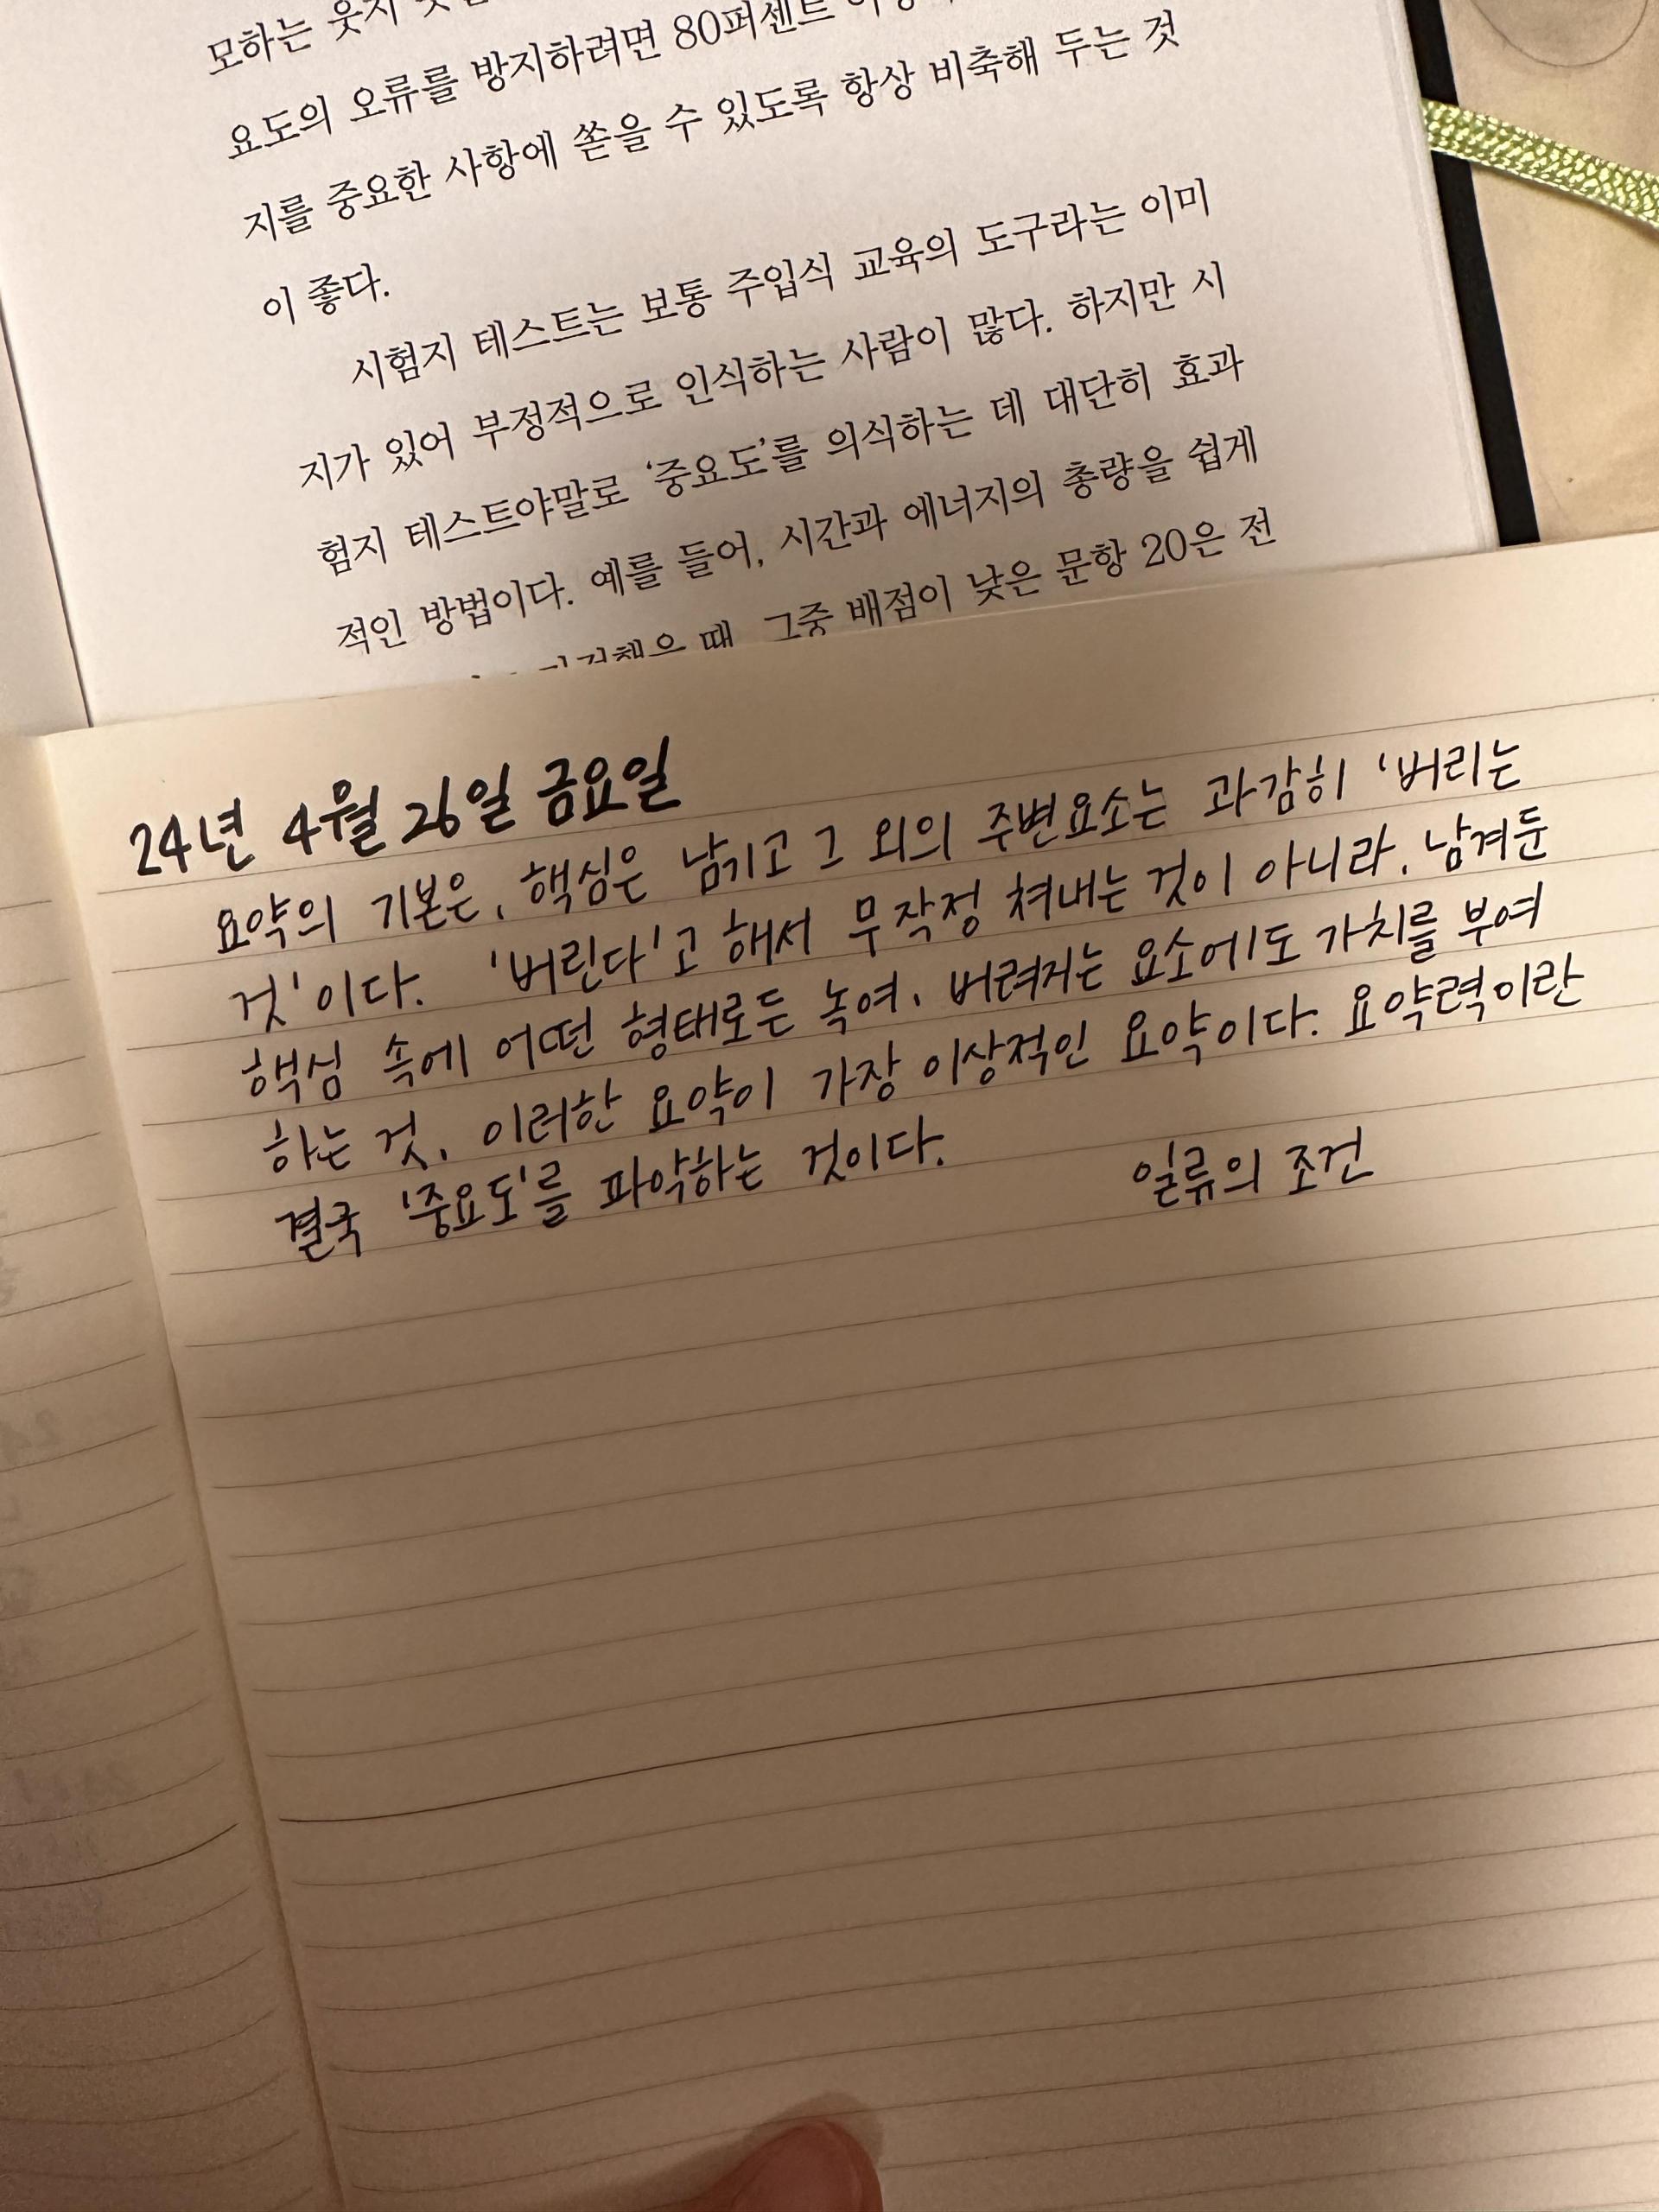 모하는 웃지
요도의 오류를 방지하려면 80퍼센트
지를 중요한 사항에 쏟을 수 있도록 항상 비축해 두는 것
이 좋다.
시험지 테스트는 보통 주입식 교육의 도구라는 이미
지가 있어 부정적으로 인식하는 사람이 많다. 하지만 시
험지 테스트야말로 ‘중요도’를 의식하는 데 대단히 효과
적인 방법이다. 예를 들어, 시간과 에너지의 총량을 쉽게
때, 그중 배점이 낮은 문항 20은 전
24년 4월 26일 금요일
요약의 기본은, 핵심은 남기고 그 외의 주변요소는 과감히 '버리는
것'이다. '버린다'고 해서 무작정 쳐내는 것이 아니라, 남겨둔
핵심 속에 어떤 형태로든 녹여, 버려지는 요소에도 가치를 부여
하는 것, 이러한 요약이 가장 이상적인 요약이다. 요약력이란
결국 '중요도'를 파악하는 것이다. 일류의 조건